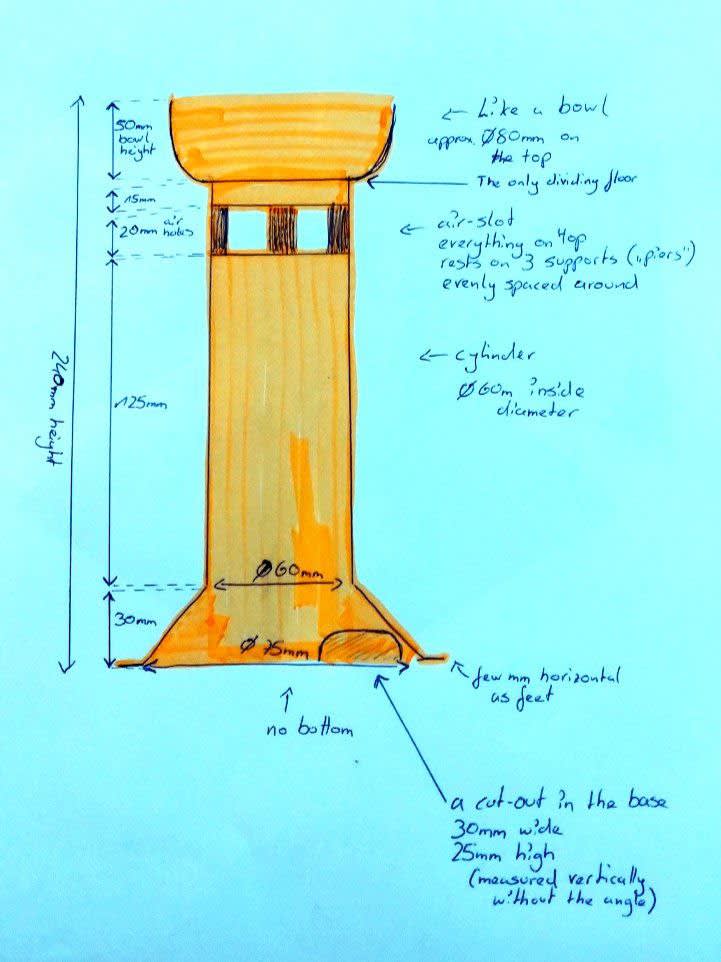 50mm
bowl
height
15mm
20mm air
holes
240mm height
125mm
30mm
← Like a bowl
approx. Ø80mm on
the top
The only dividing floor
← air-slot
everything on top
rests on 3 supports („piers")
evenly spaced around
← cylinder
Ø60m inside
diameter
Ø60mm
Ø 75mm
few mm horizontal
as feet
no bottom
a cut-out in the base
30mm wide
25mm high
(measured vertically
without the angle)